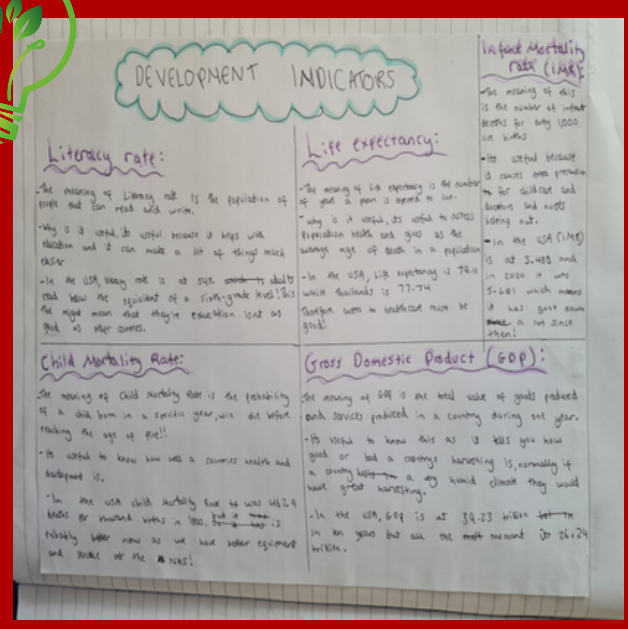 DEVELOPMENT INDICATORS
Literacy rate:
-The meaning of Literacy rate is the population of
people that can read and write.
-Why is it useful, its useful because it helps with
education and it can make a lot of things much
easier
-In the USA, literacy rate is at 54%
read below the equivilent of a sixth-grade level! This
might mean that they're education isnt as
good as other
Life expectancy:
-The meaning of Life expectancy is the number
of years a person is expected to live.
- why is it useful, its useful to assess
population health and gives us the
average age of death in a population
-In the USA, Life expectancy is
while Thailands is 77.74
Therefore access to healthcare must be
good!
Infant Mortality
rate (IMR):
-The meaning of this
is the number of infant
deaths for every 1,000
live births
-Its useful because
it causes extra
for childcare and
doctors and nurses
helping out.
-In the USA (IMR)
is at 5.489 and
in 2020 it was
5.681 which means
it has gone down
a lot since
then!
Child Mortality Rate:
-The meaning of Child Mortality Rate is the probability
of a child born in a specific year, will die before
reaching the age of five!!
-Its useful to know how well a countries health and
is.
-In the USA child Mortality Rate was 462.9
deaths per thousand births in 1800, is
probably better now as we have better
and service of the NHS!
Gross Domestic Product (GDP):
-The meaning of GDP is the total value of goods produced
and services produced in a country during one year.
-Its useful to know this as it tells you how
good or bad a countrys harvesting is, normally if
a country a very humid climate they would
have great harvesting.
-In the USA, GDP is at 39.23 trillion
in ten years but at the moment its 26.24
trillion.